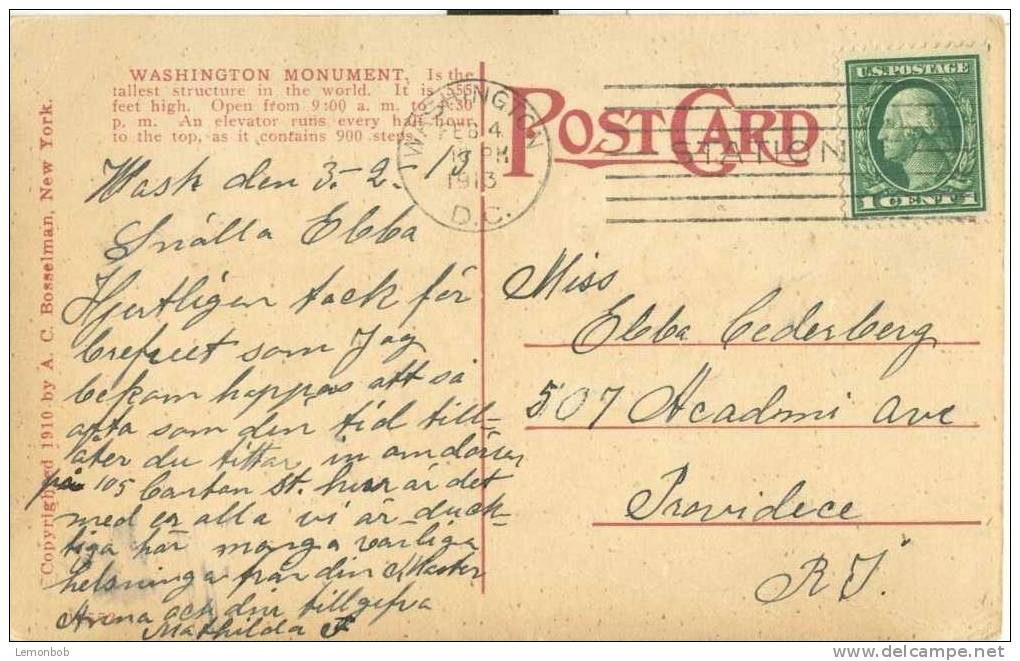 WASHINGTON MONUMENT, Is the
tallest structure in the world. It is 555
feet high. Open from 9:00 a. m. to 4:30
p. m. An elevator runs every half hour
to the top, as it contains 900 steps.
Copyrighted 1910 by A. C. Bosselman, New York.
POST CARD
WASHINGTON
FEB 4
PM
1913
D.C.
STATION
U.S. POSTAGE
1 CENT 1
Wash den 3.-2.-13
Snälla Ebba
Hjertligan tack för
brefvet som Jag
bekom hoppas att så
ofta som din tid till-
åter du tittar in om dörren
på 105 Canton St. hur är det
med er alla vi är duck-
tiga här många varliga
helsninga från din Moster
Anna och din tillgifva
Mathilda F
Miss
Ebba Cederberg
507 Academi Ave
Providece
R I.
Lemonbob
delcampe.net